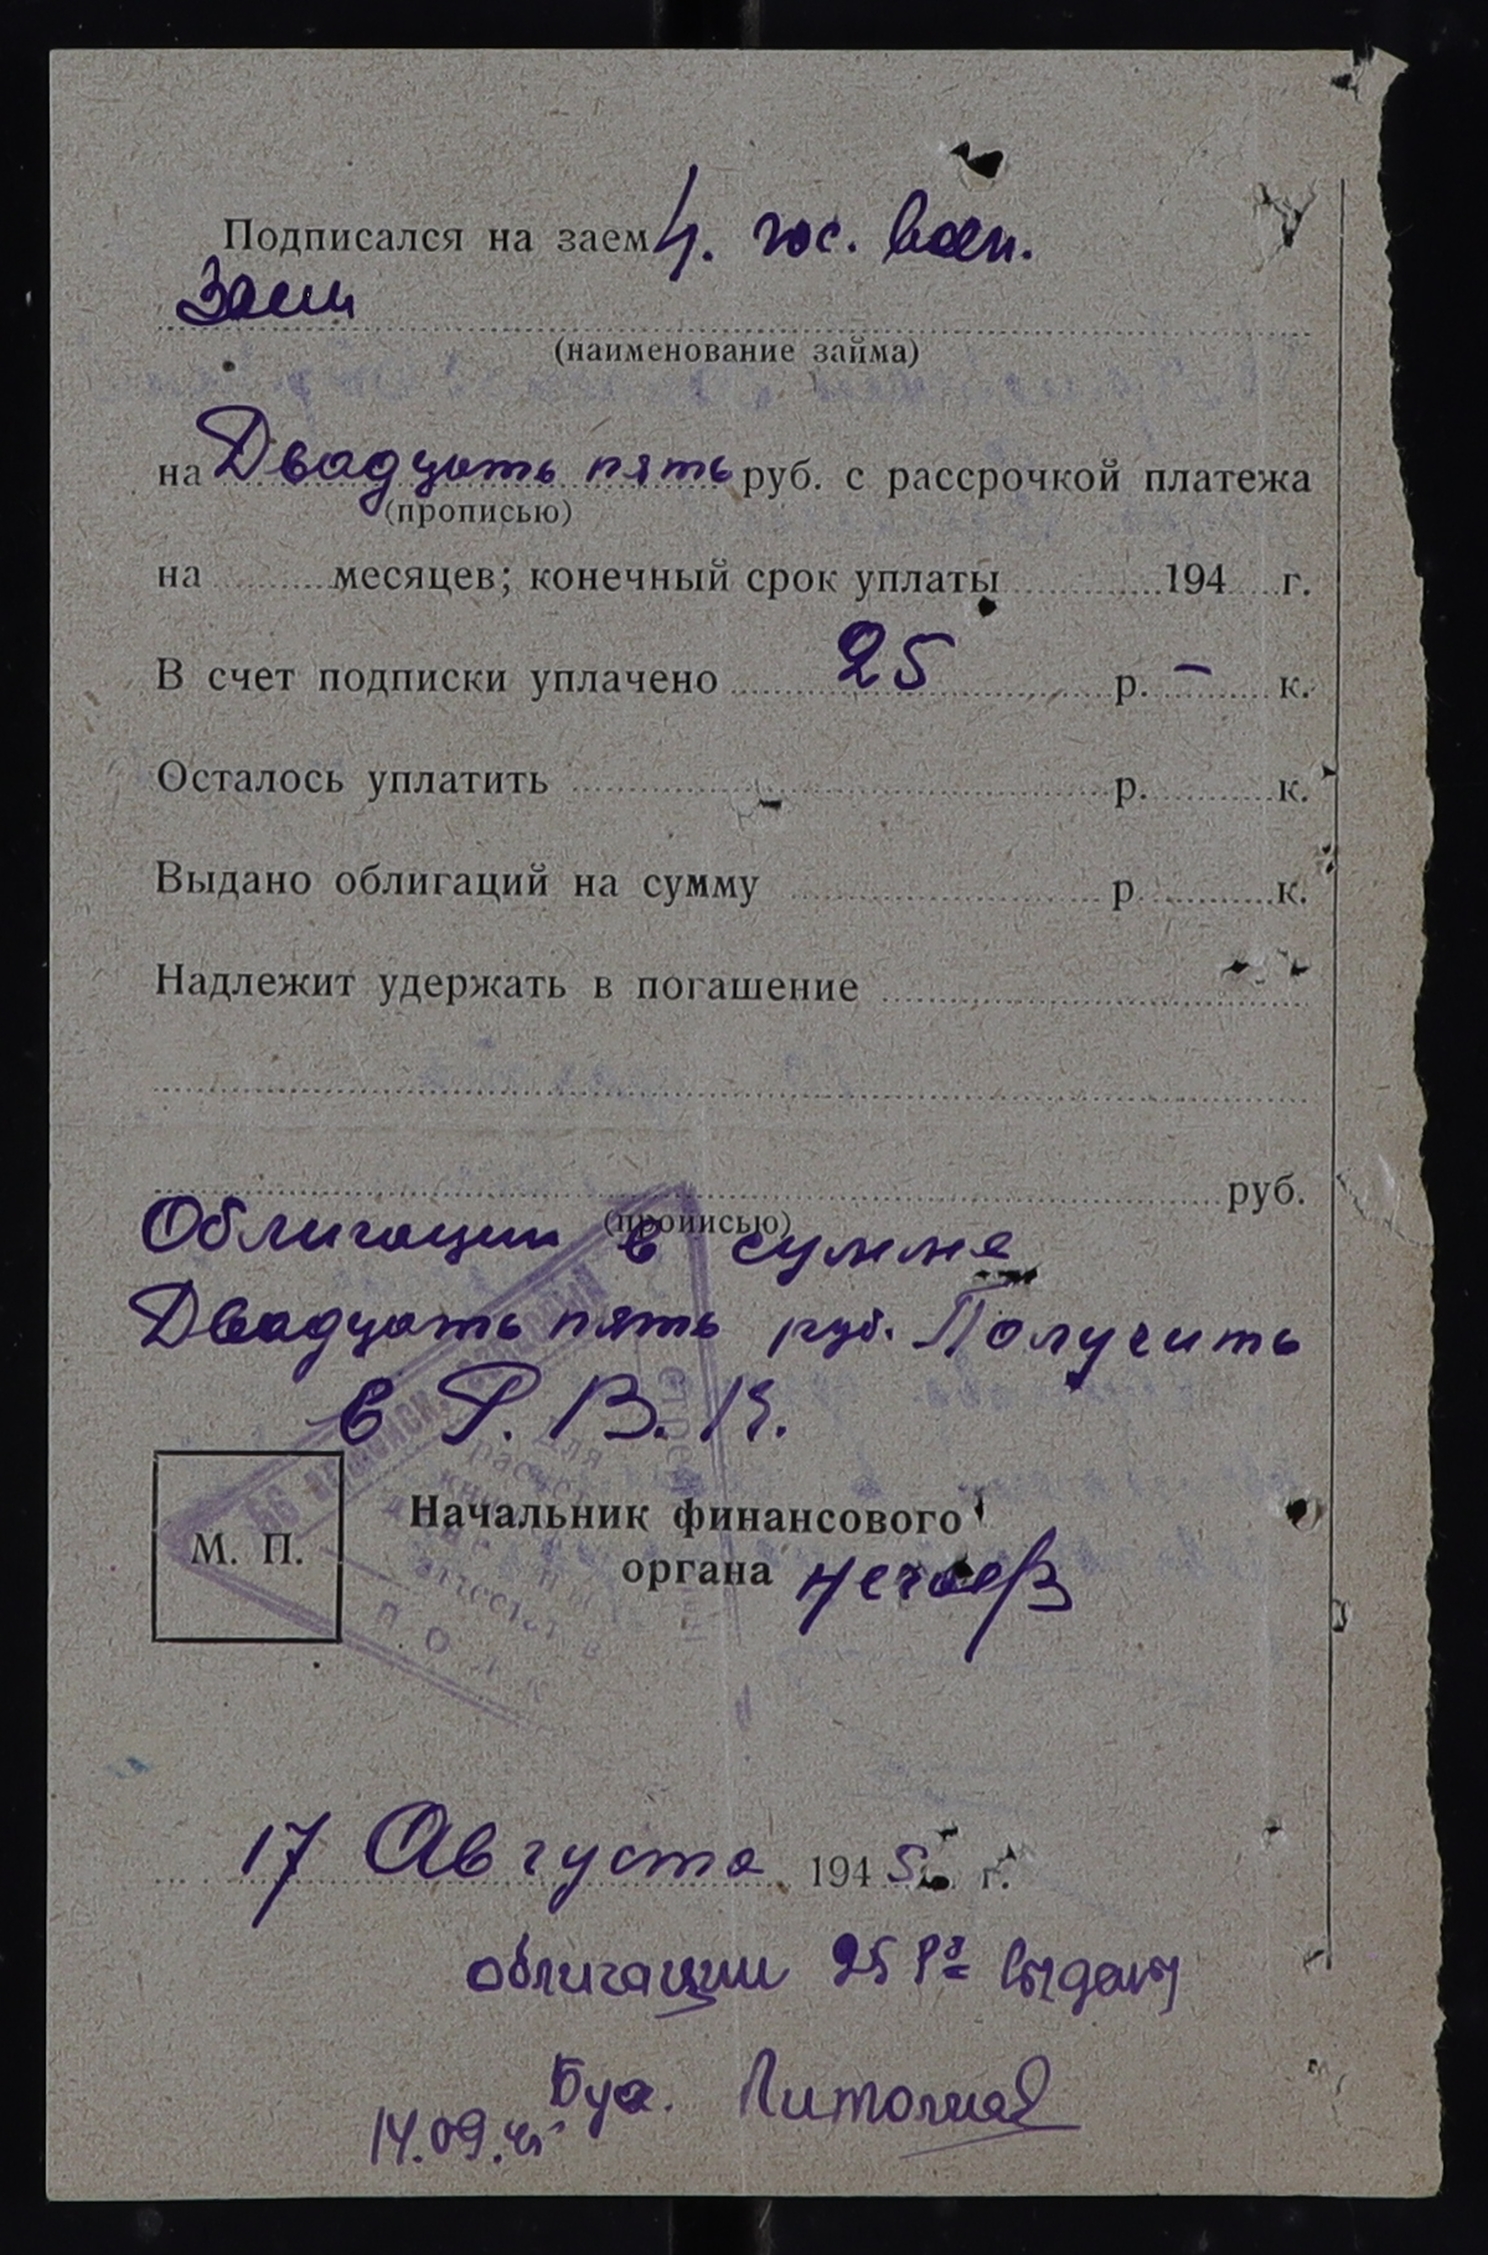 Подписался на заем 4. гос. воен.
Заем
(наименование займа)
на Двадцать пять руб. с рассрочкой платежа
(прописью)
на месяцев; конечный срок уплаты 194 г.
В счет подписки уплачено 25 р. – к.
Осталось уплатить р. к.
Выдано облигаций на сумму р. к.
Надлежит удержать в погашение
руб.
(прописью)
Облигации в сумме
Двадцать пять руб. Получить
в Р. В. К.
для
М. П.
Начальник финансового
органа Нечаев
17 Августа 1945 г.
облигации 25 Р. выданы
Бух.
14.09.45